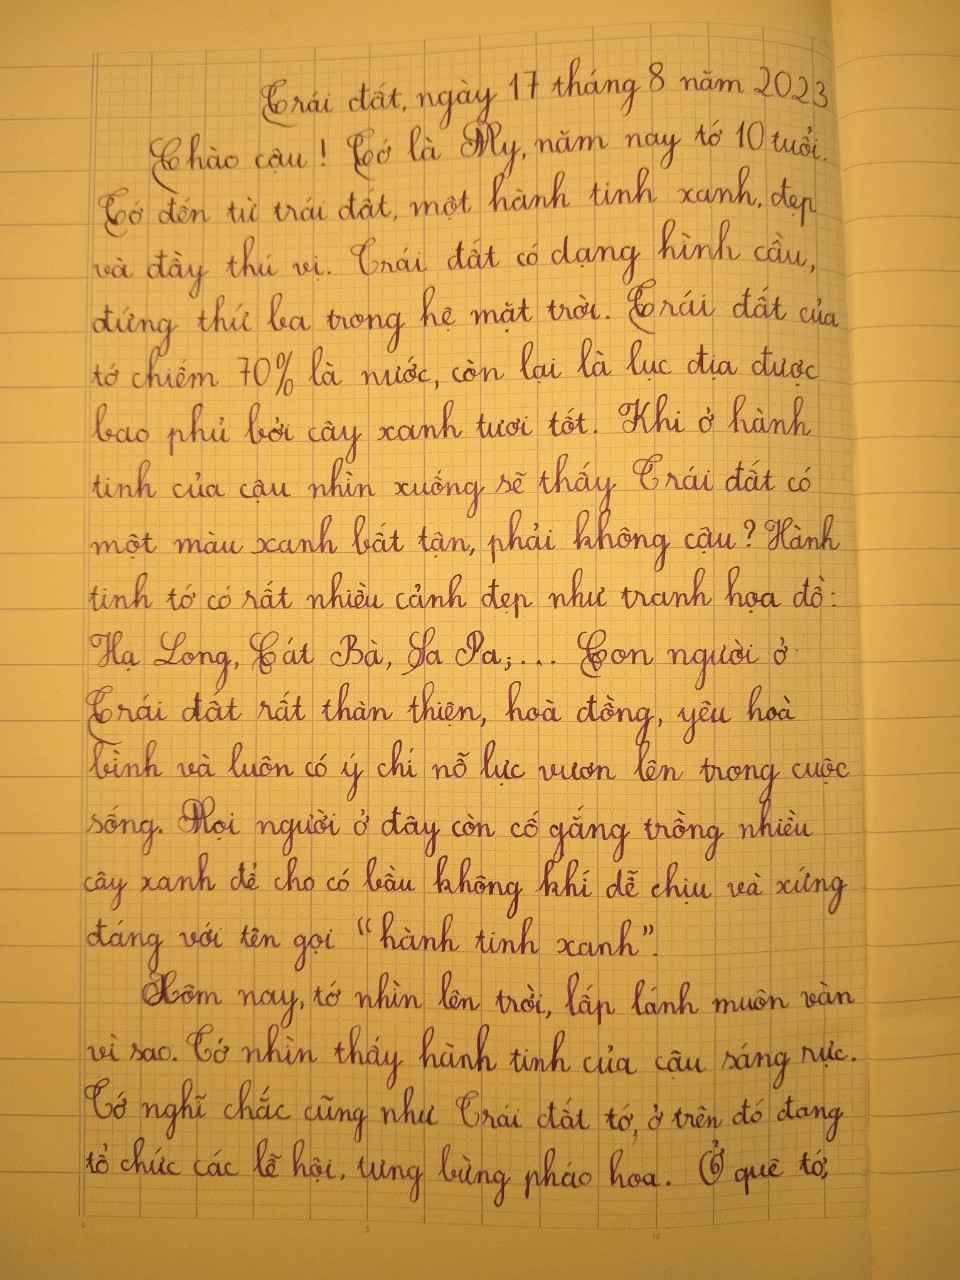 Trái đất, ngày 17 tháng 8 năm 2023
Chào cậu! Tớ là My, năm nay tớ 10 tuổi.
Tớ đến từ trái đất, một hành tinh xanh, đẹp
và đầy thú vị. Trái đất có dạng hình cầu,
đứng thứ ba trong hệ mặt trời. Trái đất của
tớ chiếm 70% là nước, còn lại là lục địa được
bao phủ bởi cây xanh tươi tốt. Khi ở hành
tinh của cậu nhìn xuống sẽ thấy Trái đất có
một màu xanh bất tận, phải không cậu? Hành
tinh tớ có rất nhiều cảnh đẹp như tranh họa đồ:
Hạ Long, Cát Bà, Sa Pa;... Con người ở
Trái đất rất thân thiện, hoà đồng, yêu hoà
bình và luôn có ý chí nỗ lực vươn lên trong cuộc
sống. Mọi người ở đây còn cố gắng trồng nhiều
cây xanh để cho có bầu không khí dễ chịu và xứng
đáng với tên gọi "hành tinh xanh".
Hôm nay, tớ nhìn lên trời, lấp lánh muôn vàn
vì sao. Tớ nhìn thấy hành tinh của cậu sáng rực.
Tớ nghĩ chắc cũng như Trái đất tớ, ở trên đó đang
tổ chức các lễ hội, tưng bừng pháo hoa. Ở quê tớ,